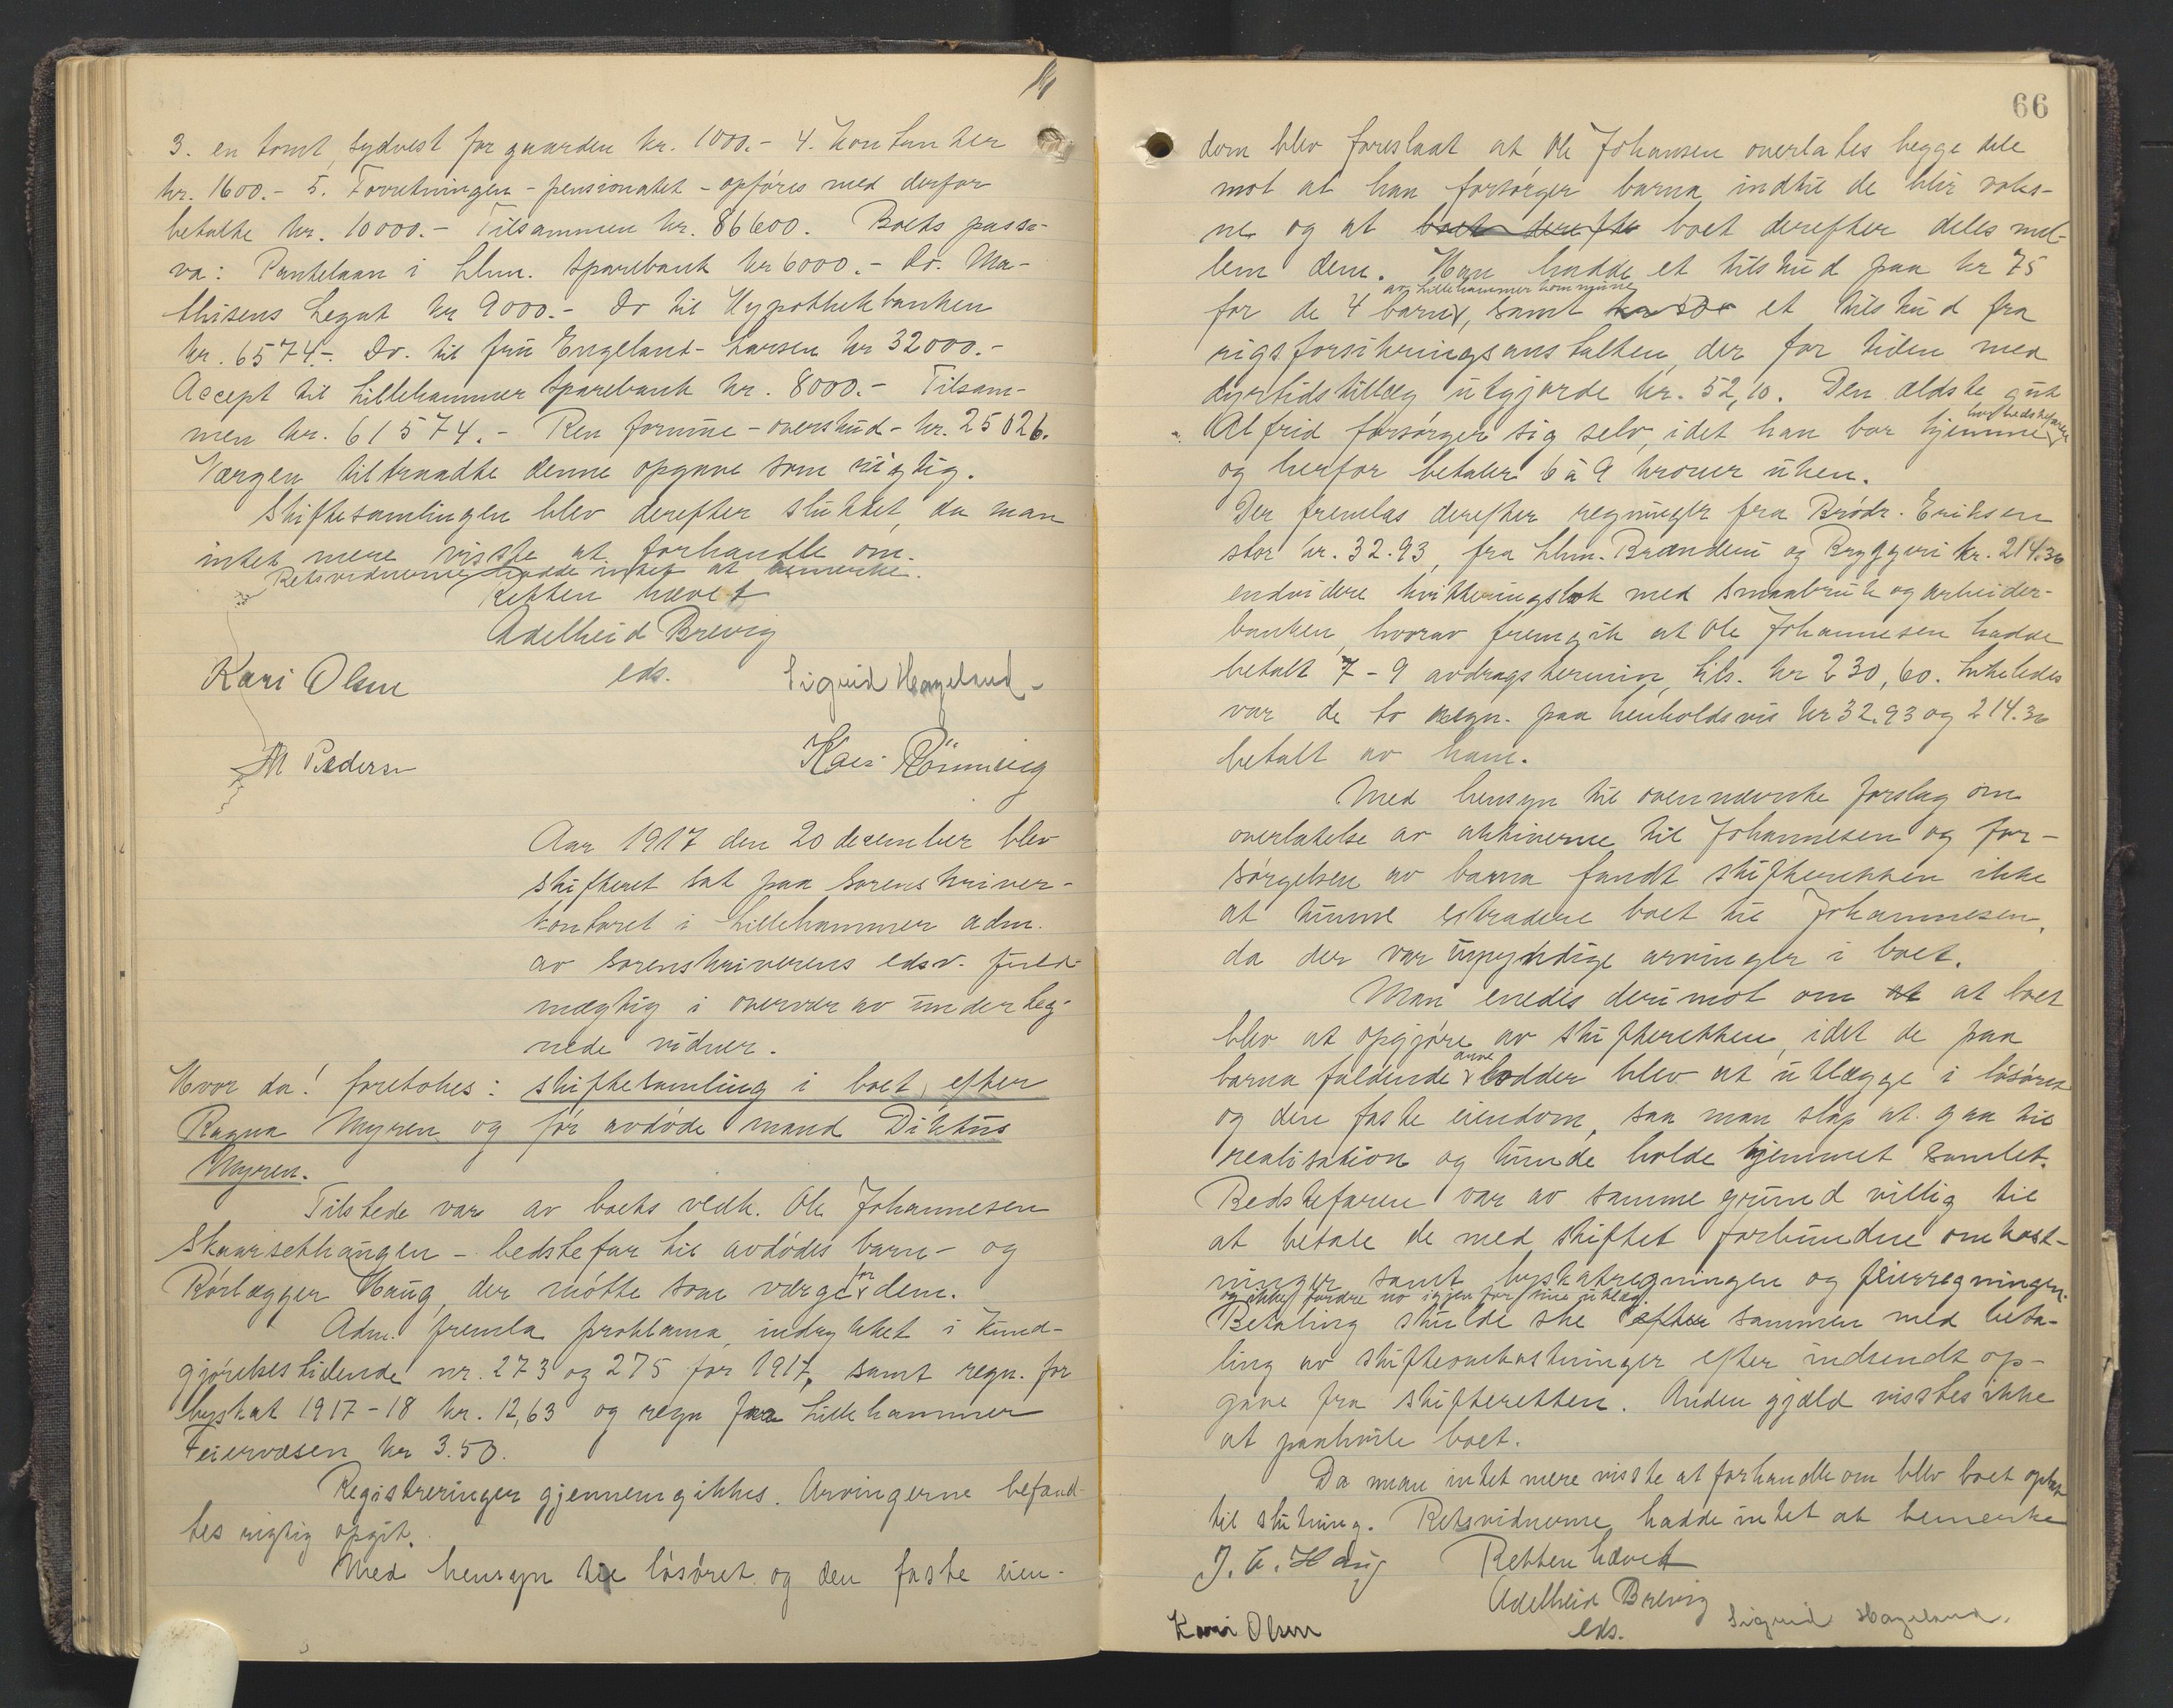 3. en tomt, sydvest for gaarden kr. 1000.- 4. Kontanter
kr. 1600.- 5. Forretningen - pensionatet - opføres med derfor
betalte kr. 10000.- Tilsammen kr. 86600. Boets passi-
va: Pantelaan i Lhm. Sparebank kr 6000.- Do. Ma-
thisens Legat kr 9000.- do til Hypothekbanken
kr. 6574.- Do. til fru Engeland-Larsen kr 32000.-
Accept til Lillehammer Sparebank kr. 8000.- Tilsam-
men kr. 61574.- Ren formue - overskud - kr. 25026.
Værgen tiltraadte denne opgave som rigtig.
Skiftesamlingen blev derefter sluttet, da man
intet mere visste at forhandle om.
Retsvidnerne hadde intet at bemerke.
Retten hævet
Adelheid Brevig
eds.
Kari Olsen
Sigrid Hageland
M Pedersen
Kari Rönning
Aar 1917 den 20 december blev
skifteret sat paa Sorenskriver-
kontoret i Lillehammer adm.
av sorenskriverens edsv. fuld-
mægtig i overvær av underteg-
nede vidner.
Hvor da! foretokes: skiftesamling i boet efter
Ragna Myren og før avdøde mand Diktus
Myren.
Tilstede var av boets vedk. Ole Johannesen
Skaarsethaugen - bedstefar til avdødes barn - og
Rørlægger Haug, der møtte som verge for dem.
Adm. fremla proklama, indrykket i Kund-
gjørelsestidende nr. 273 og 275 for 1917, samt regn. for
byskat 1917-18 kr. 12,63 og regn fra Lillehammer
Feiervæsen kr 3.50.
Registreringen gjennemgikkes. Arvingerne befand-
tes rigtig opgit.
Med hensyn til løsøret og den faste eien-
66
dom blev foreslaat at Ole Johansen overlates begge dele
mot at han forsørger barna indtil de blir voks-
ne og at boet derefter boet derefter deles mel-
lem dem. Han hadde et tilskud paa kr 75
av Lillehammer kommune
for de 4 barna, samt et tilskud fra
rigsforsikringsanstalten, der for tiden med
dyrtidstillæg utgjorde kr. 52,10. Den ældste gut
hos bedstefaren
Alfrid forsørger sig selv, idet han bor hjemme
og herfor betaler 6 à 9 kroner uken.
Der fremlas derefter regninger fra Brødr. Eriksen
stor kr. 32.93, fra Lhm. Brænderi og Bryggeri kr. 214.30
endvidere kvitteringsbok med Smaabruk og arbeider-
banken, hvorav fremgik at Ole Johannesen hadde
betalt 7-9 avdragstermin, tils. kr 230,60. Likeledes
var de to regn. paa henholdsvis kr 32.93 og 214.30
betalt av ham.
Med hensyn til ovennævnte forslag om
overlatelse av aktiverne til Johannesen og for-
sørgelsen av barna fandt skifteretten ikke
at kunne extradere boet til Johannesen,
da der var umyndige arvinger i boet.
Man enedes derimot om at at boet
blev at opgjøre av skifteretten, idet de paa
arve
barna faldende lodder blev at utlægge i løsøret
og den faste eiendom, saa man slap at gaa til
realisation og kunde holde hjemmet samlet.
Bedstefaren var av samme grund villig til
at betale de med skiftet forbundne omkost-
ninger samt byskatregningen og feierregningen.
og ikke fordre no igjen for sine utlæg
Betaling skulde ske efter sammen med beta-
ling av skifteomkostninger efter indsendt op-
gave fra skifteretten. Anden gjæld visstes ikke
at paahvile boet.
Da man intet mere visste at forhandle om blev boet optat
til slutning. Retsvidnerne hadde intet at bemerke
J. E. Haug
Retten hævet
Adelheid Brevig
eds.
Kari Olsen
Sigrid Hageland.